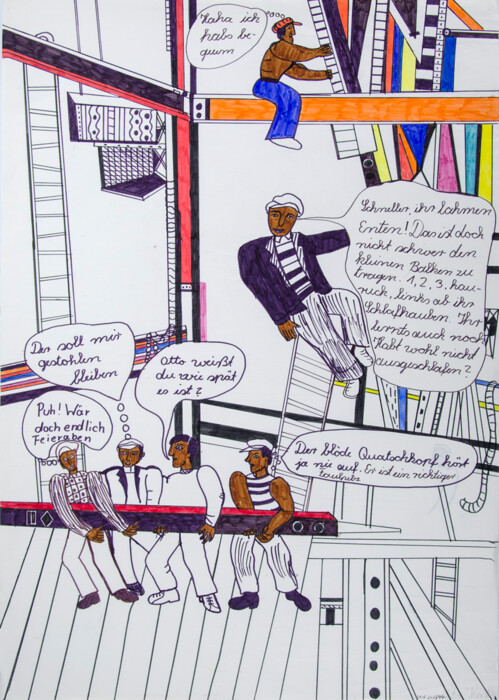 Haha ich
habs be-
quem
Schneller, ihr lahmen
Enten! Das ist doch
nicht schwer den
kleinen Balken zu
tragen. 1, 2, 3, hau-
ruck, links ab ihr
Schlafhauben. Ihr
lernts auch noch
Habt wohl nicht
ausgeschlafen?
Der soll mir
gestohlen
bleiben
Otto weißt
du wie spät
es ist?
Puh! Wär
doch endlich
Feieraben
Der blöde Quatschkopf hört
ja nie auf. Er ist ein richtiger